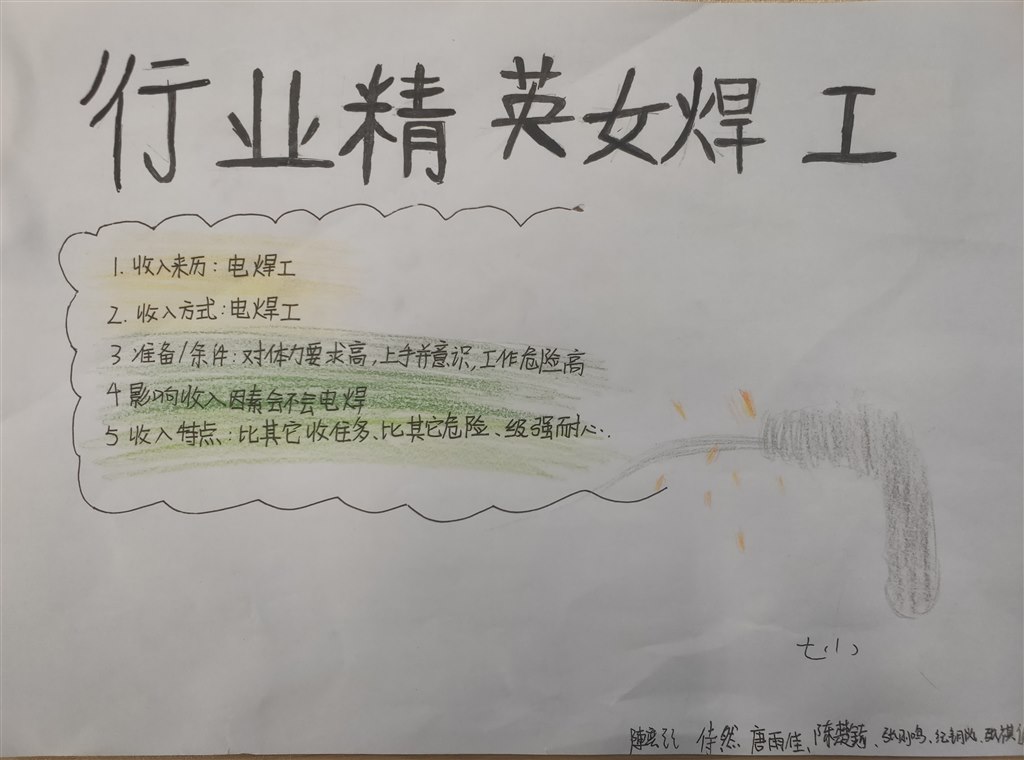 行业精英女焊工
1. 收入来历：电焊工
2. 收入方式：电焊工
3 准备/条件：对体力要求高，上手并意识，工作危险高
4 影响收入因素会不会电焊
5 收入特点：比其它收住多、比其它危险、级强耐心..
七(1)
侍然、唐雨佳、陈楚铸、